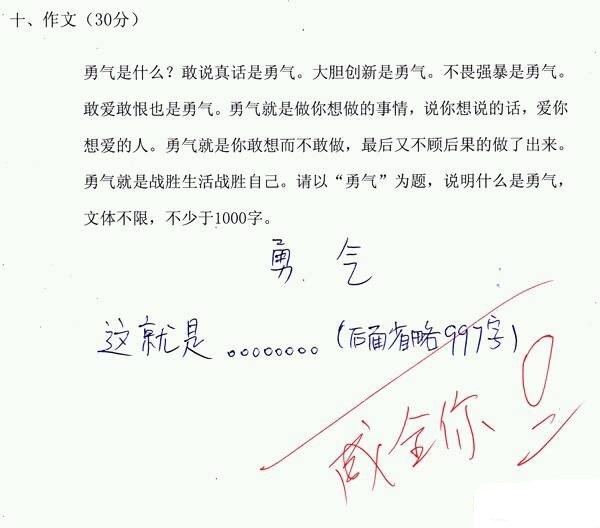 十、作文（30分）
勇气是什么？敢说真话是勇气。大胆创新是勇气。不畏强暴是勇气。
敢爱敢恨也是勇气。勇气就是做你想做的事情，说你想说的话，爱你
想爱的人。勇气就是你敢想而不敢做，最后又不顾后果的做了出来。
勇气就是战胜生活战胜自己。请以“勇气”为题，说明什么是勇气，
文体不限，不少于1000字。
勇 气
这就是。。。。。。。。（后面省略997字）
成全你 0